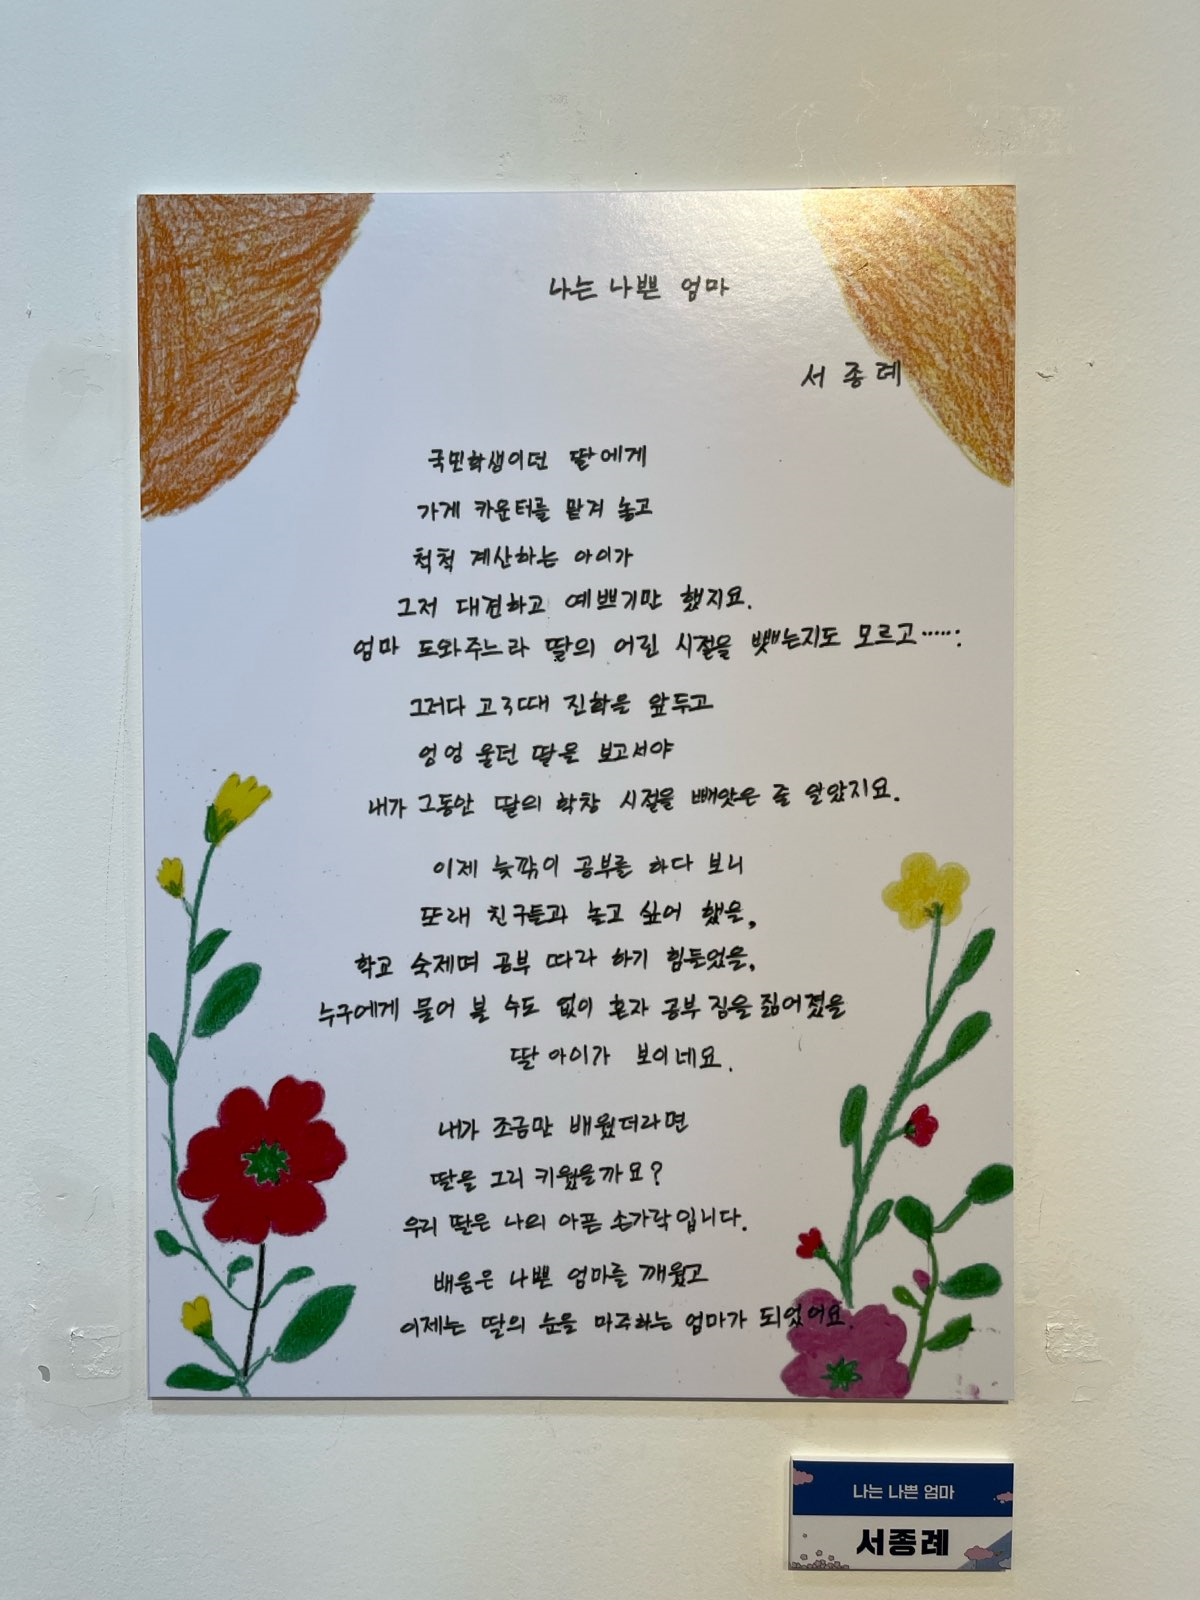 나는 나쁜 엄마
서종례
국민학생이던 딸에게
가게 카운터를 맡겨 놓고
척척 계산하는 아이가
그저 대견하고 예쁘기만 했지요.
엄마 도와주느라 딸의 어린 시절을 뺏는지도 모르고……
그러다 고3때 진학을 앞두고
엉엉 울던 딸을 보고서야
내가 그동안 딸의 학창 시절을 빼앗은 줄 알았지요.
이제 늦깎이 공부를 하다 보니
또래 친구들과 놀고 싶어 했을,
학교 숙제며 공부 따라 하기 힘들었을,
누구에게 물어 볼 수도 없이 혼자 공부 짐을 짊어졌을
딸 아이가 보이네요.
내가 조금만 배웠더라면
딸을 그리 키웠을까요?
우리 딸은 나의 아픈 손가락입니다.
배움은 나쁜 엄마를 깨웠고
이제는 딸의 눈을 마주하는 엄마가 되었어요.
나는 나쁜 엄마
서종례